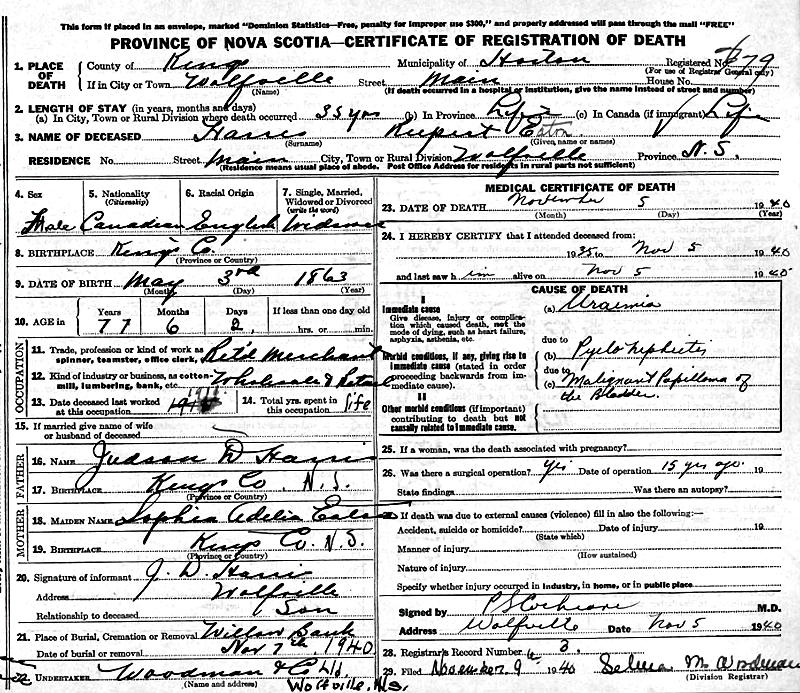 This form if placed in an envelope, marked "Dominion Statistics—Free, penalty for improper use $300," and properly addressed will pass through the mail "FREE"
PROVINCE OF NOVA SCOTIA—CERTIFICATE OF REGISTRATION OF DEATH
1. PLACE OF DEATH County of Kings Municipality of Horton Registered No. 879
(For use of Registrar General only)
If in City or Town Wolfville Street Main House No.
(Name) (If death occurred in a hospital or institution, give the name instead of street and number)
2. LENGTH OF STAY (in years, months and days)
(a) In City, Town or Rural Division where death occurred 35 yrs (b) In Province Life (c) In Canada (if immigrant) Life
3. NAME OF DECEASED Harris Rupert Eaton
(Surname) (Given name or names)
RESIDENCE No. Street Main City, Town or Rural Division Wolfville Province N.S.
(Residence means usual place of abode. Post Office Address for residents in rural parts not sufficient)
4. Sex 5. Nationality (Citizenship) 6. Racial Origin 7. Single, Married, Widowed or Divorced (write the word)
Male Canadian English Widower
8. BIRTHPLACE Kings Co.
(Province or Country)
9. DATE OF BIRTH May 3rd 1863
(Month) (Day) (Year)
10. AGE in Years Months Days If less than one day old
77 6 2 hrs. or min.
OCCUPATION
11. Trade, profession or kind of work as spinner, teamster, office clerk, etc. Ret'd Merchant
12. Kind of industry or business, as cotton-mill, lumbering, bank, etc. Wholesale & Retail
13. Date deceased last worked at this occupation 14. Total yrs. spent in this occupation life
15. If married give name of wife or husband of deceased
FATHER
16. NAME Judson D Harris
17. BIRTHPLACE Kings Co. N.S.
(Province or Country)
MOTHER
18. MAIDEN NAME Sophia Adelia Eaton
19. BIRTHPLACE Kings Co. N.S.
(Province or Country)
20. Signature of informant J. D. Harris
Address Wolfville
Relationship to deceased Son
21. Place of Burial, Cremation or Removal Willow Bank
Date of burial or removal Nov 7th, 1940
22. UNDERTAKER Woodman & Co Ltd.
(Name and address) Wolfville, N.S.
MEDICAL CERTIFICATE OF DEATH
23. DATE OF DEATH November 5 1940
(Month) (Day) (Year)
24. I HEREBY CERTIFY that I attended deceased from:
1935 to Nov 5 1940
and last saw him alive on Nov 5 1940
CAUSE OF DEATH
I
Immediate cause (a) Uraemia
Give disease, injury or complication which caused death, not the mode of dying, such as heart failure, asphyxia, asthenia, etc.
due to
Morbid conditions, if any, giving rise to immediate cause (stated in order proceeding backwards from immediate cause). (b) Pyelo nephritis
due to
(c) Malignant Papilloma of the Bladder.
II
Other morbid conditions (if important) contributing to death but not causally related to immediate cause.
25. If a woman, was the death associated with pregnancy?
26. Was there a surgical operation? Yes Date of operation 15 yrs ago. 19
State findings Was there an autopsy?
27. If death was due to external causes (violence) fill in also the following:—
Accident, suicide or homicide? Date of injury 19
(State which)
Manner of injury
(How sustained)
Nature of injury
Specify whether injury occurred in industry, in home, or in public place
Signed by P S Cochrane M.D.
Address Wolfville Date Nov 5 1940
28. Registrar's Record Number
29. Filed November 9 1940 Selena M Woodman
(Division Registrar)